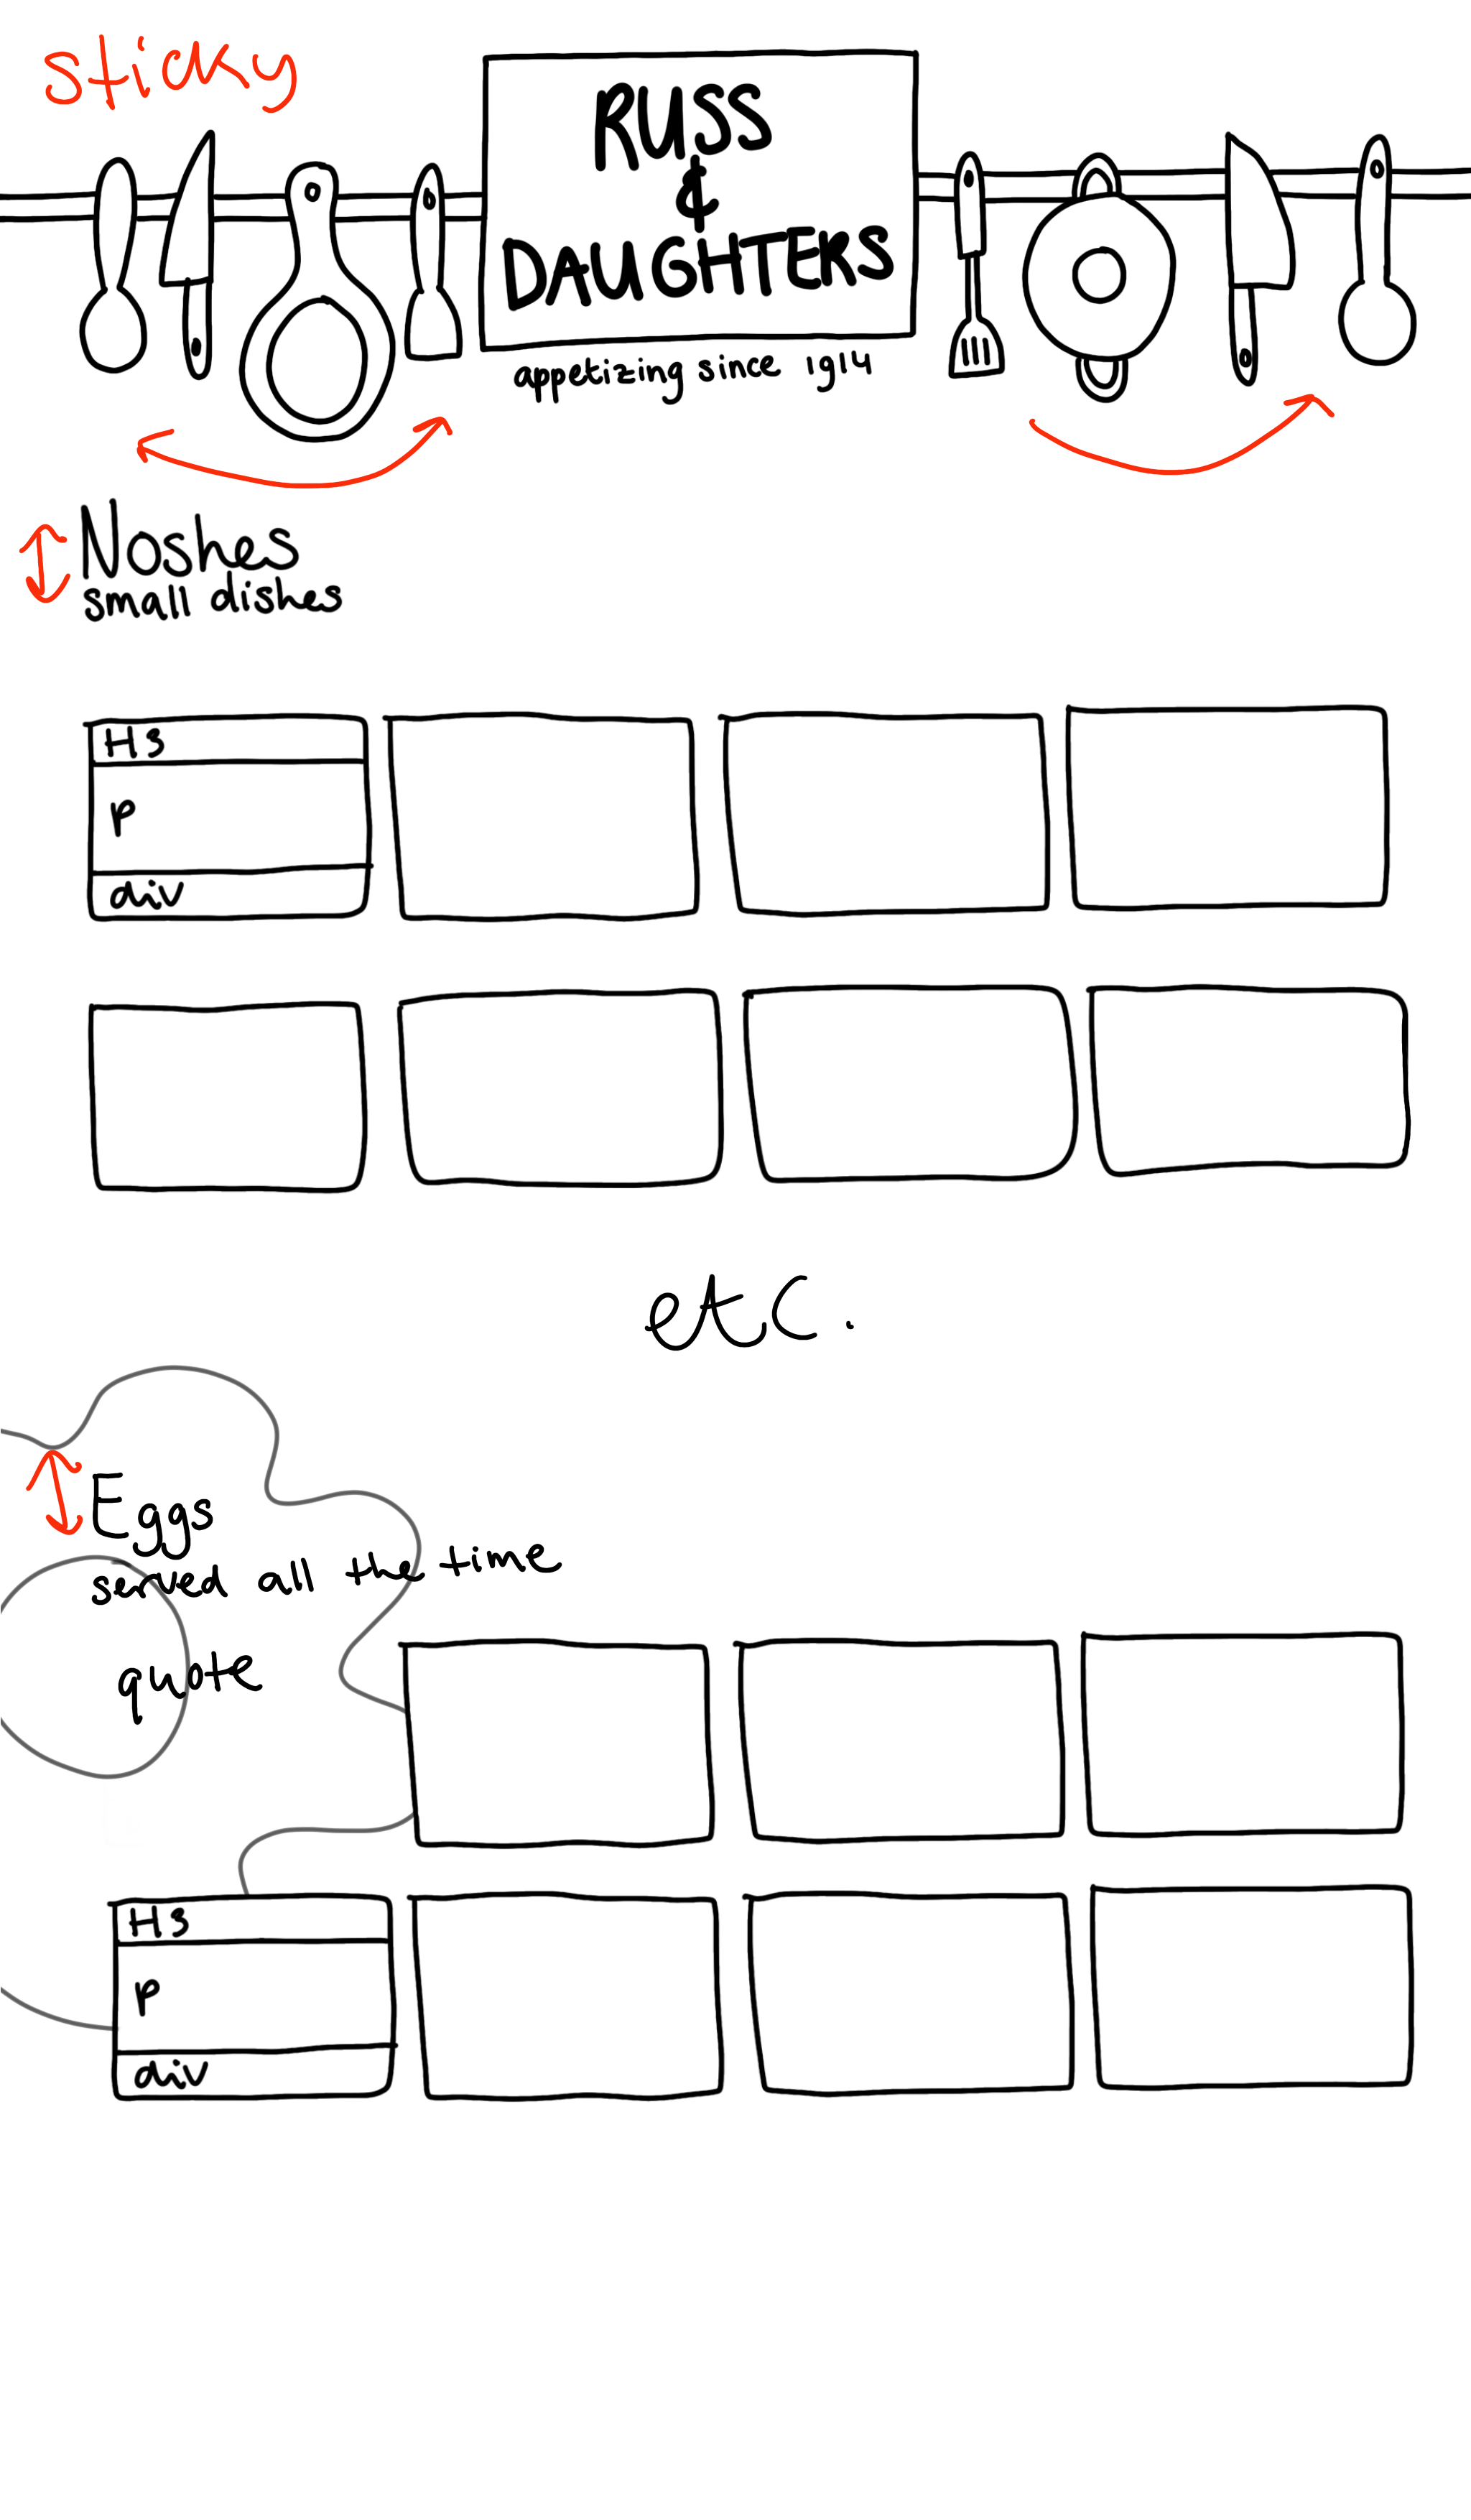 sticky
RUSS
&
DAUGHTERS
appetizing since 1914
Noshes
small dishes
H3
p
div
etc.
Eggs
served all the time
quote
H3
p
div